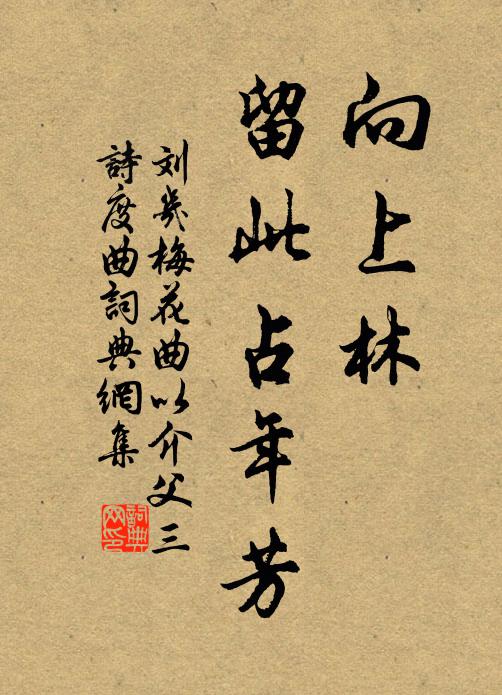 向上林
留此占年芳
刘几梅花曲以介父三
詩度曲詞典網集
詞典
网印